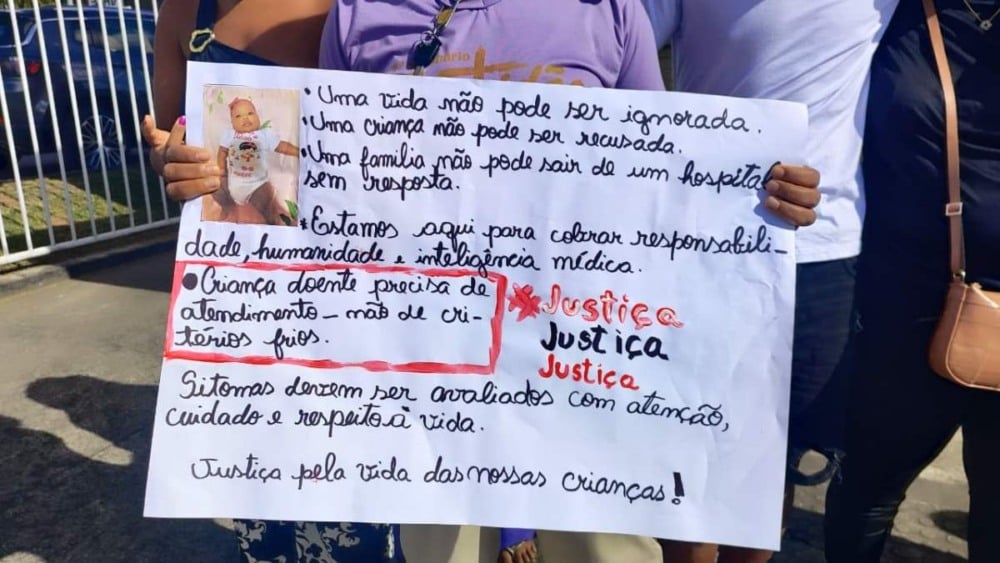 • Uma vida não pode ser ignorada.
• Uma criança não pode ser recusada.
• Uma familia não pode sair de um hospital
sem resposta.
* Estamos aqui para cobrar responsabili-
dade, humanidade e inteligência médica.
• Criança doente precisa de
atendimento - não de cri-
térios frios.
* Justiça
Justiça
Justiça
Sitomas devem ser avaliados com atenção,
cuidado e respeito à vida.
Justiça pela vida das nossas crianças!